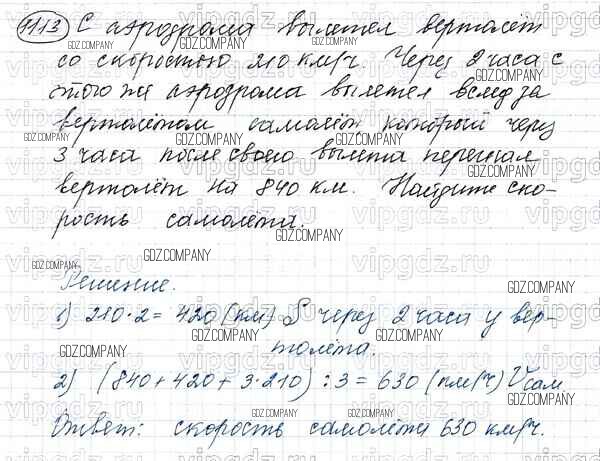 1113 С аэродрома вылетел вертолёт
со скоростью 210 км/ч. Через 2 часа с
этого же аэродрома вылетел вслед за
вертолётом самолёт, который через
3 часа после своего вылета перегнал
вертолёт на 840 км. Найдите ско-
рость самолета.
Решение.
1) 210·2 = 420 (км) S через 2 часа у вер-
толёта.
2) (840 + 420 + 3·210) : 3 = 630 (км/ч) V сам
Ответ: скорость самолёта 630 км/ч.